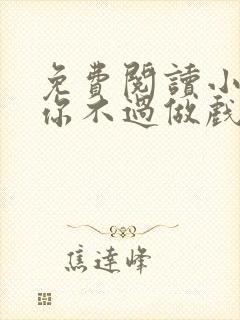 免費閱讀小
你不過做戲
焦達峰